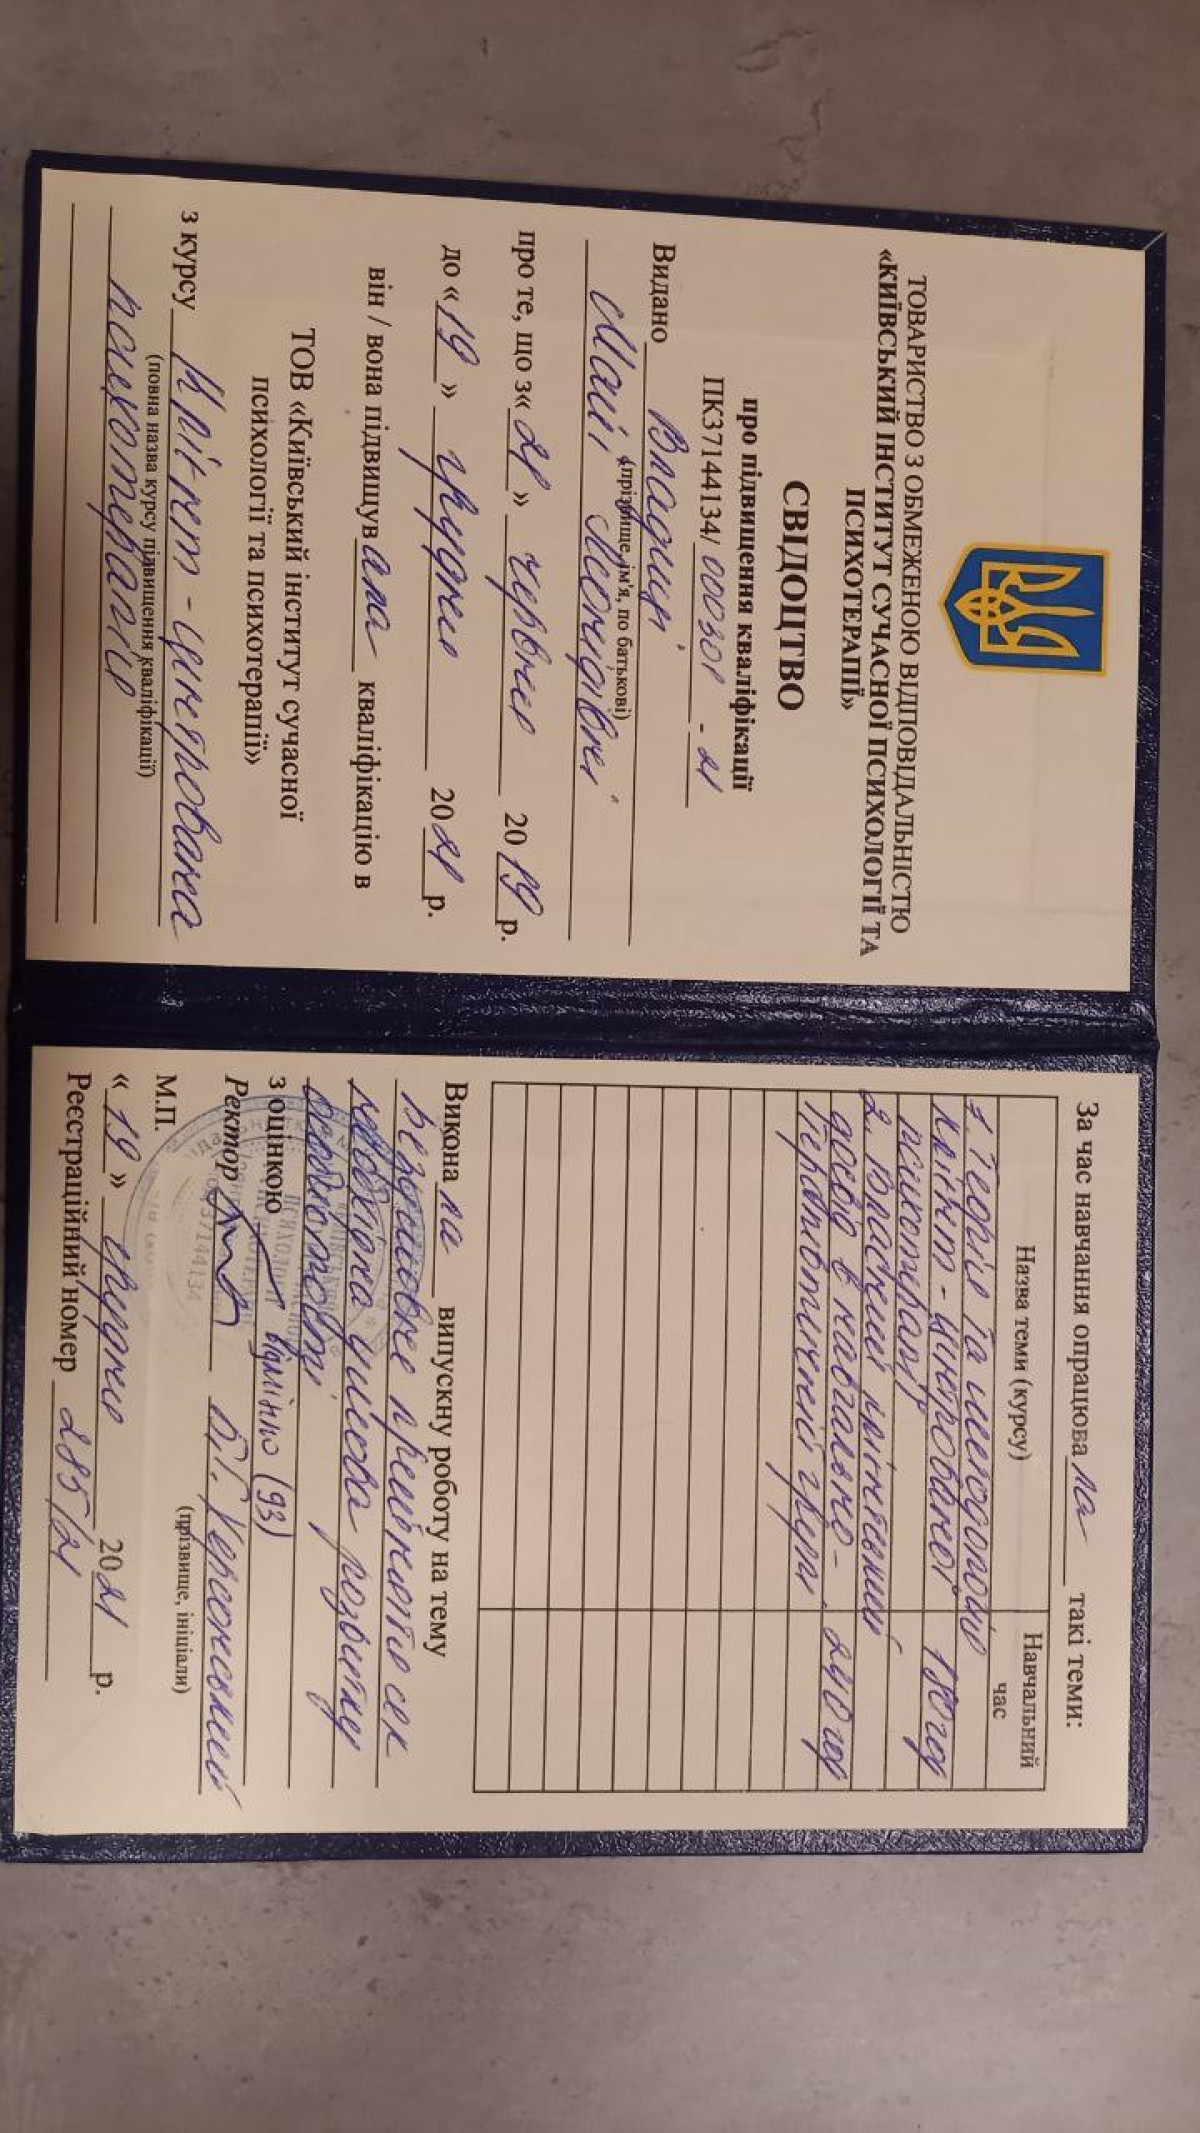 ТОВАРИСТВО З ОБМЕЖЕНОЮ ВІДПОВІДАЛЬНІСТЮ
«КИЇВСЬКИЙ ІНСТИТУТ СУЧАСНОЇ ПСИХОЛОГІЇ ТА
ПСИХОТЕРАПІЇ»
СВІДОЦТВО
про підвищення кваліфікації
ПК37144134/ 000301 - 21
Видано Владиці
(прізвище, ім'я, по батькові)
Маії Леонідівні
про те, що з« 21 » червня 20 19 р.
до « 19 » грудня 20 21 р.
він / вона підвищув ала кваліфікацію в
ТОВ «Київський інститут сучасної
психології та психотерапії»
з курсу Клієнт-центрована
(повна назва курсу підвищення кваліфікації)
психотерапія
За час навчання опрацюва ла такі теми:
Назва теми (курсу) Навчальний
час
1. Теорія та методологія
клієнт-центрованої 180 год
психотерапії
2. Власний клієнтський
досвід в навчально- 240 год
терапевтичній групі
Викона ла випускну роботу на тему
Безумовне прийняття як
необхідна умова розвитку
особистості
з оцінкою відмінно (93)
Ректор Б.Г. Херсонський
(прізвище, ініціали)
М.П.
« 19 » грудня 20 21 р.
Реєстраційний номер 285/21
37144134